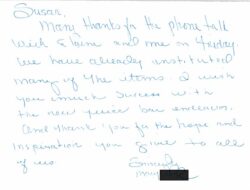 Susan,
Many thanks for the phone talk
with Elaine and me on Friday
We have already instituted
many of the items. I wish
you much success with
the new juice bar endeavor.
And thank you for the hope and
inspiration you give to all
of us.
Sincerely